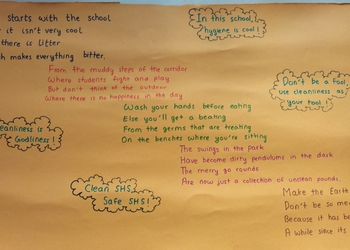 starts with the school
it isn't very cool
there is litter
makes everything bitter,
In this school,
hygiene is cool!
From the muddy steps of the corridor
Where students fight and play
But don't think of the outdoor
Where there is no happiness in the day
Don't be a fool,
use cleanliness as
your tool!
Wash your hands before eating
Else you'll get a beating
From the germs that are treating
On the benches where you're sitting
Cleanliness is
Godliness!
The swings in the park
Have become dirty pendulums in the dark
The merry go rounds
Are now just a collection of unclean pounds.
Clean SHS,
Safe SHS!
Make the Earth
Don't be so me
Because it has be
A while since its